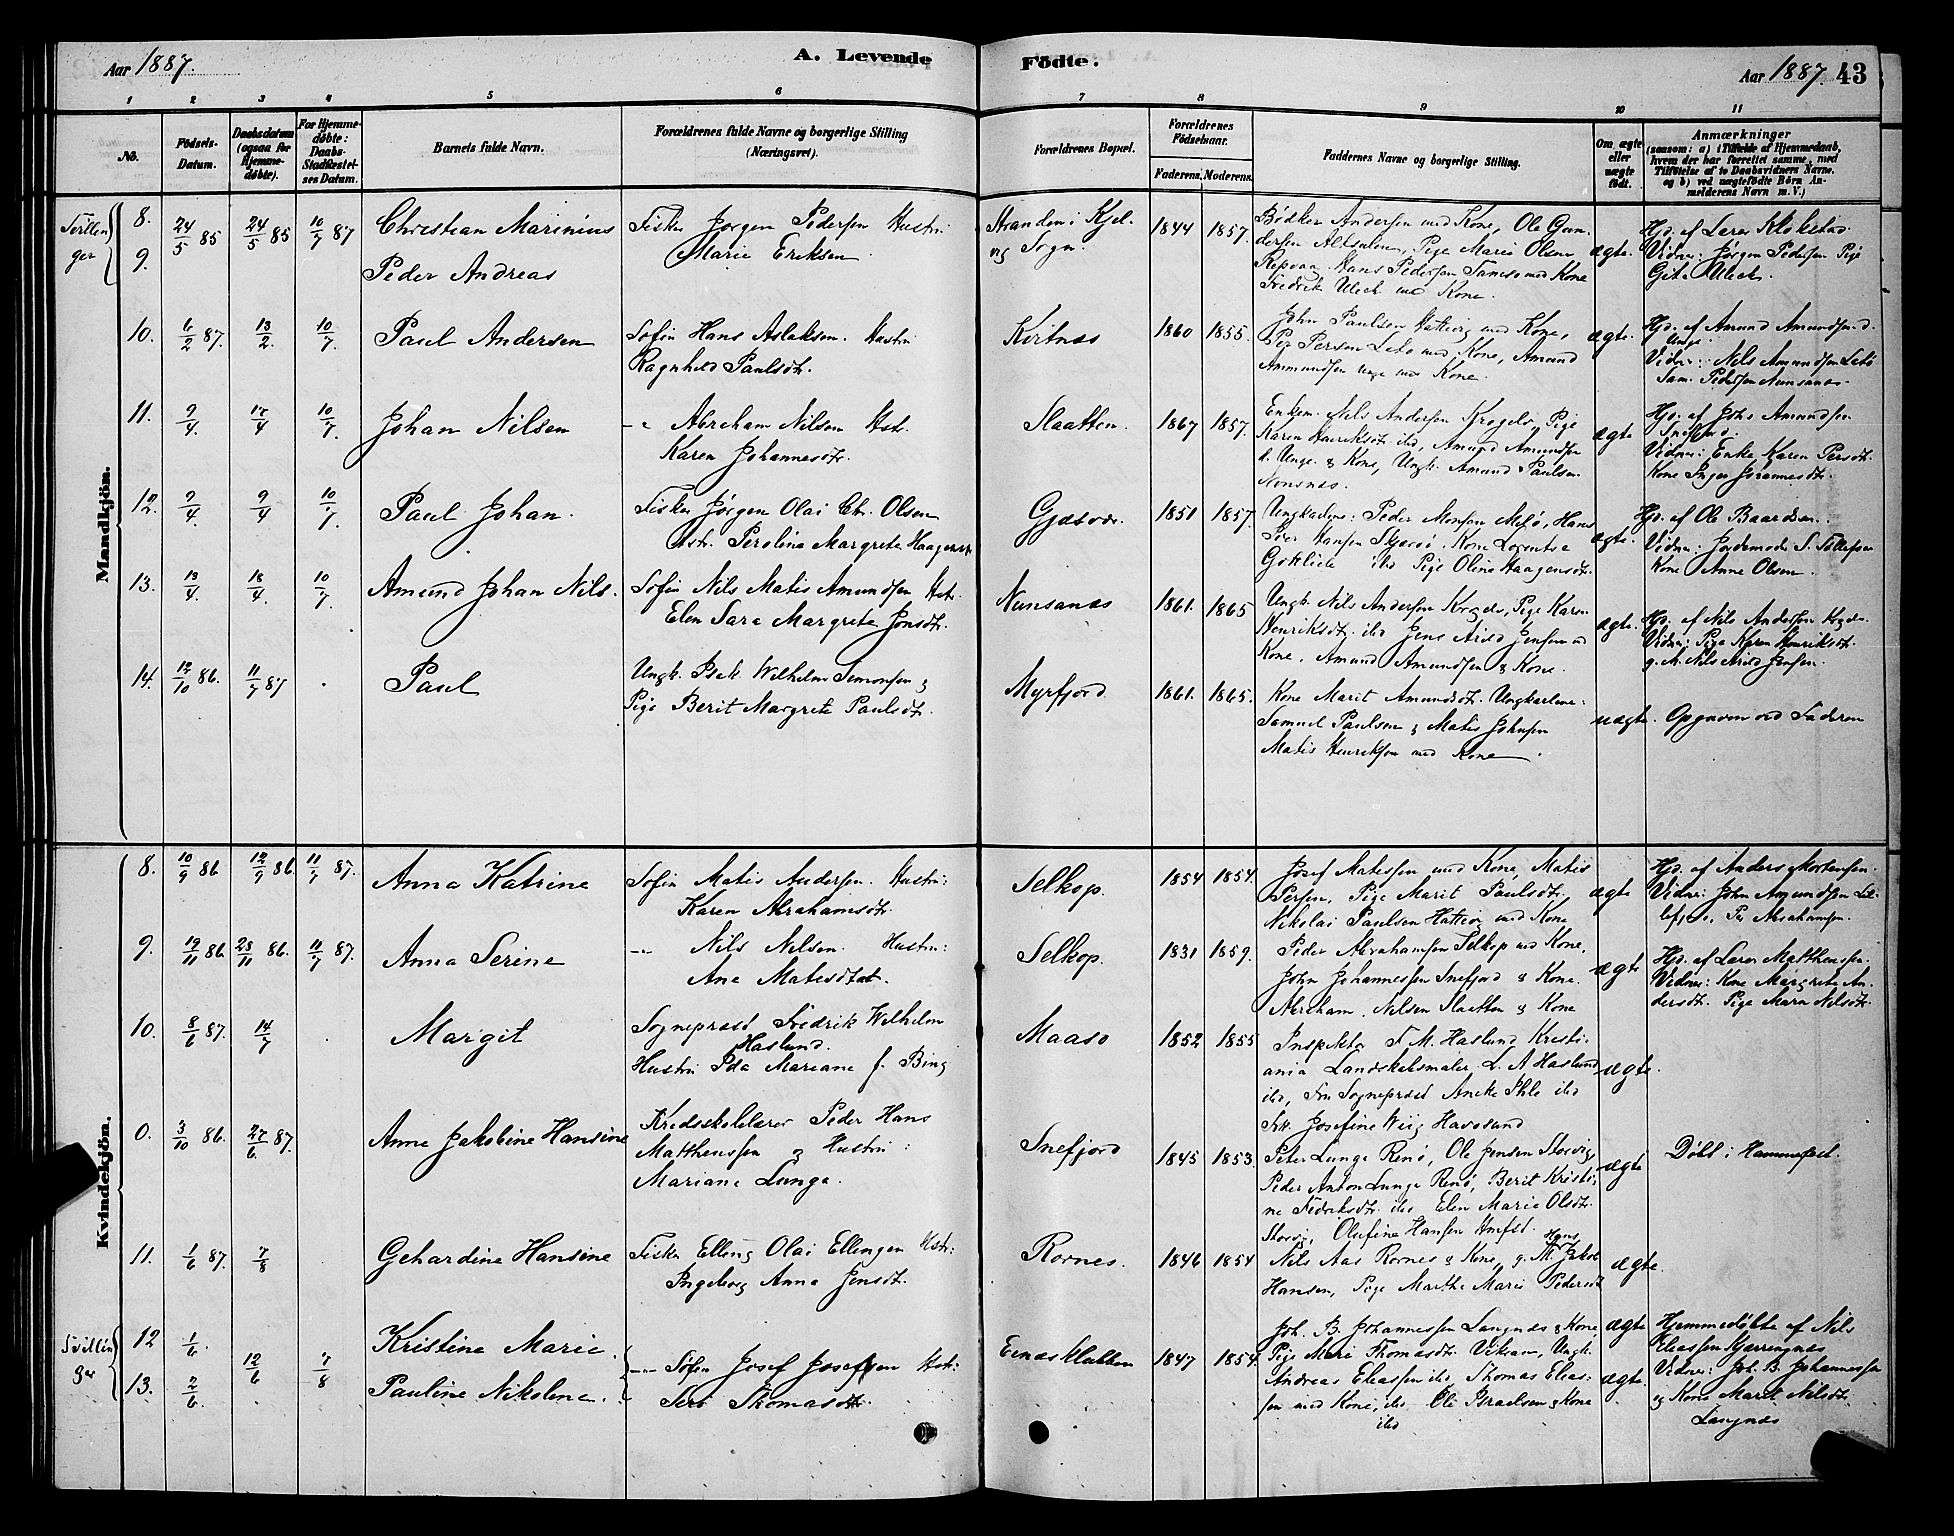 Aar 1887.
A. Levende
Födte.
Aar 1887. 43
1 2 3 4 5 6 7 8 9 10 11
No.
Födsels-
Datum.
Daabsdatum
(ogsaa for
Hjemme-
döbte).
For Hjemme-
döbte:
Daabs-
Stadfæstel-
ses Datum.
Barnets fulde Navn.
Forældrenes fulde Navne og borgerlige Stilling
(Næringsvei).
Forældrenes Bopæl.
Forældrenes
Födselsaar.
Faderens. Moderens.
Faddernes Navne og borgerlige Stilling.
Om ægte
eller
uægte
födt.
Anmærkninger
(saasom: a) i Tilfælde af Hjemmedaab,
hvem der har forrettet samme, med
Tilföielse af to Daabsvidners Navne,
og b) ved uægtefödte Börn An-
melderens Navn m. V.)
Mandkjön.
8.
9.
24/5 85
24/5 85
10/7 87
Christian Marinius
Peder Andreas
Fisker Jørgen Pedersen Hustru
Marie Eriksen
Stranden i Kjel-
vig Sogn.
1844 1857.
Bødker Andersen med Kone, Ole Gun-
dersen Pige Marie Olsen
Repvaag. Hans Pedersen Tamsø med Kone
Fredrik Uleck med Kone.
ægte.
Hjd. af Lærer Klokstad
Vidner: Jørgen Pedersen Pige
Uleck.
10.
6/2 87.
13/2.
10/7.
Paul Andersen
Søfin Hans Aslaksen. Hustru
Ragnhild Paulsdt.
1860 1855.
John Paulsen Hattevig med Kone,
Per Persen med Kone, Amund
Ammundsen Unge med Kone.
ægte.
Hjd. af Amund Amundsen d.
Unge.
Vidner: Nils Amundsen
Sam. Pedersen Nunsanæs.
11.
9/4.
17/4
10/7.
Johan Nilsen
-"- Abraham Nilsen Hstr.
Karen Johannesdt.
Slaatten.
1867 1857.
Enkem. Nils Andersen Pige
Karen Henriksdt. ibd, Amund Amundsen
d. Unge & Kone, Ungk. Amund Paulsen
ægte
Hjd. af Johs Amundsen
Snefjord.
Vidner: Enke Karen Persdt.
Kone Inger Johannesdt.
12.
9/4.
9/4
10/7.
Paul Johan.
Fisker Jørgen Olai Chr. Olsen
Hstr. Perolina Margrete Haagensdt
Gjæsvær.
1851 1857.
Ungkarlene: Peder Monsen Hans
Peder Hansen Kone Lorentse
ibd Pige Olina Haagensdt.
ægte.
Hjd. af Ole Baardsen.
Vidner: Jordemoder S. Tollefsen
Kone Anne Olsen.
13.
13/4.
18/4.
10/7.
Amund Johan Nils.
Søfin Nils Matis Amundsen Hstr.
Elen Sara Margrete Jonsdt.
Nunsanæs
1861. 1865
Ungk. Nils Andersen Pige Karen
Henriksdt. ibd Jens Arild Jensen med
Kone, Amund Amundsen & Kone.
ægte.
Hjd. af Nils Andersen
Vidner: Pige Karen Henriksdt.
g. M. Nils Arild Jensen.
14.
12/10 86.
11/7 87
Paul
Ungk. Isak Wilhelm Simonsen &
Pige Berit Margrete Paulsdt.
Myrfjord
1861. 1865.
Kone Marit Amundsdt. Ungkarlene:
Samuel Paulsen & Matis Johnsen
Matis Henriksen med Kone
uægte.
Opgiven ved Faderen
Kvindekjön.
8.
10/9 86
12/9 86.
11/7 87.
Anna Katrine
Søfin Matis Andersen. Hustru:
Karen Abrahamsdt.
Selkop.
1854 1854.
Josef Matissen med Kone, Matis
Persen, Pige Marit Paulsdt,
Nikolai Paulsen Hattevig med Kone
ægte
Hjd. af Anders Mortensen.
Vidner: John Amundsen Lil-
lefjord, Per Abrahamsen.
9.
19/11 86
23/11 86.
11/7 87.
Anna Serine
-"- Nils Nilsen. Hustru:
Ane Matisdtat.
Selkop.
1831 1859.
Peder Abrahamsen Selkop med Kone,
John Johannessen Snefjord & Kone.
Abraham Nilsen Slaatten & Kone
ægte
Hjd. af Lærer Matthenssen.
Vidner: Kone Margrete An-
dersdt. Pige Maren Nilsdt.
10.
8/6 87.
14/7
Margit
Sogneprest Fredrik Wilhelm
Haslund.
Hustru Ida Mariane f. Bing
Maasø
1852 1855
Inspektør F. M. Haslund Kristi-
ania Landskabsmaler L. A. Haslund
ibd, Fru Sogneprest Ancke Ihle ibd
Frk. Josefine Wiig Havøsund
ægte.
0.
3/10 86.
27/6. 87.
Anna Jakobine Hansine
Kredsskolelærer Peder Hans
Matthenssen og Hustru:
Mariane Lunge.
Snefjord
1845 1853.
Peter Lunge Renø, Ole Jensen Storvig,
Peder Anton Lunge Renø, Berit Kristi-
ne Fedriksdt. ibd Elen Marie Olsdt.
Storvig, Olufine Hansen Hmfst.
ægte
Døbt i Hammerfest.
11.
1/6 87.
7/8
Gehardine Hansine
Fisker Elling Olai Ellingen Hstr:
Ingeborg Anna Jensdt.
Rornes.
1846 1854
Nils Aas Rornes & Kone, g. M. Hans Jakob
Hansen, Pige Marthe Marie Pedersdt
ægte.
12
13.
1/6.
2/6.
12/6
7/8
Kristine Marie
Pauline Nikoline.
-"- Søfin Josef Josefsen Hstr:
Siri Thomasdtt.
Einesklubben
1847 1854.
Joh. B. Johannessen Langnæs & Kone,
Pige Mari Thomasdt. Viksan, Ungk.
Andreas Eliassen ibd, Thomas Elias-
sen med Kone, ibd. Ole Israelsen & Kone
ibd
ægte
ægte.
Hjemmedøbte af Nils
Eliassen Kjærringnæs
Vidner: Joh. B. Johannessen
og Kone Marit Nilsdt.
Langnæs